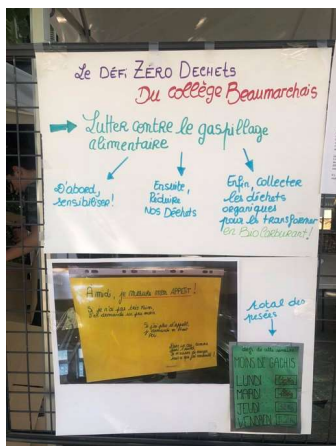 Le Défi Zéro Dechets
Du collège Beaumarchais
Lutter contre le gaspillage
alimentaire
D'abord,
sensibiliser!
Ensuite,
Réduire
Nos Déchets
Enfin, collecter
les déchets
organiques
pour les transformer
en BioCarburant!
A midi, je mesure mon APPETIT!
total des
pesées
MOINS DE GACHIS
LUNDI
MARDI
JEUDI
VENDREDI